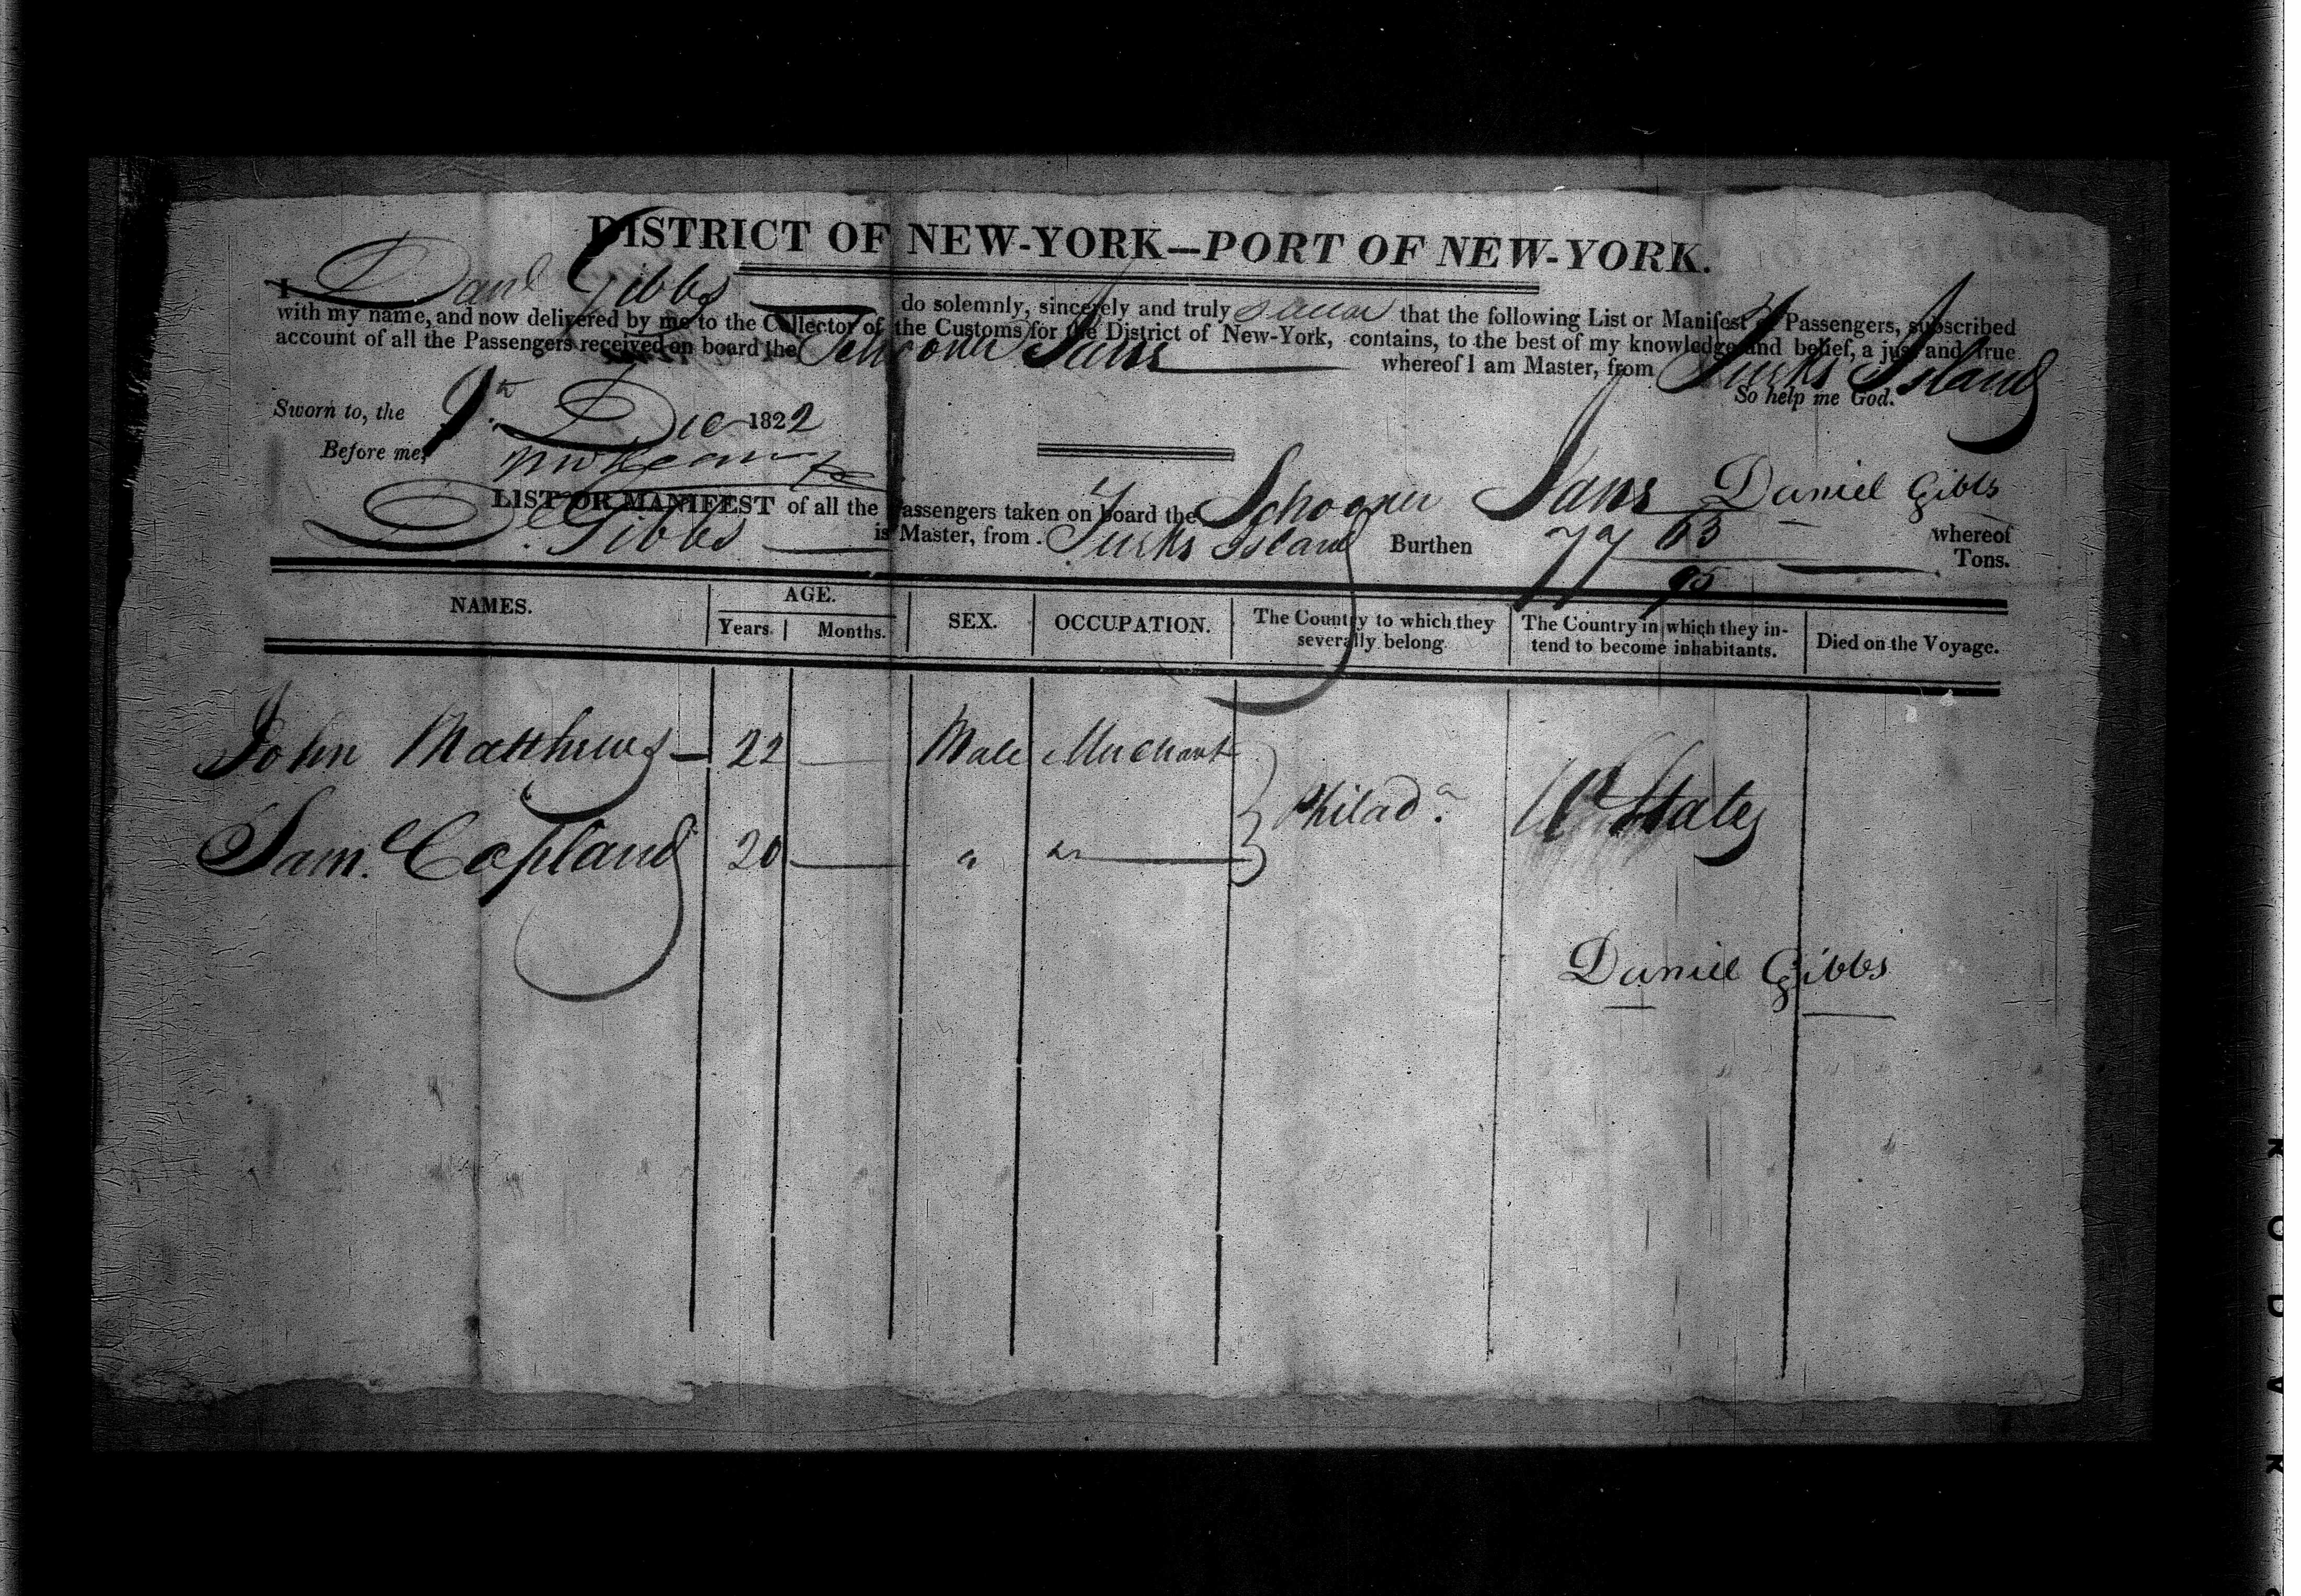 DISTRICT OF NEW-YORK—PORT OF NEW-YORK.
I Danl Gibbs do solemnly, sincerely and truly swear that the following List or Manifest of Passengers, subscribed
with my name, and now delivered by me to the Collector of the Customs for the District of New-York, contains, to the best of my knowledge and belief, a just and true
account of all the Passengers received on board the Schooner whereof I am Master, from Turks Island
So help me God.
Sworn to, the 9th Dec 1822
Before me,
LIST OR MANIFEST of all the Passengers taken on board the Schooner Daniel Gibbs whereof
D. Gibbs is Master, from Turks Island Burthen 77 63/95 Tons.
NAMES. AGE. SEX. OCCUPATION. The Country to which they severally belong. The Country in which they intend to become inhabitants. Died on the Voyage.
Years. Months.
John Matthews — 22 — Male Merchant
Philada. U States
Saml. Copland 20 — " "
Daniel Gibbs
KODAK